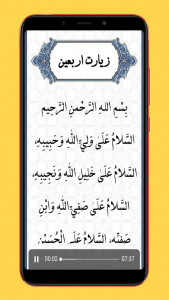 زیارت اربعین
بِسْمِ اللهِ الرَّحْمنِ الرَّحِيمِ
السَّلامُ عَلَى وَلِيِّ اللهِ وَحَبِيبِهِ،
السَّلامُ عَلَى خَلِيلِ اللهِ وَنَجِيبِهِ،
السَّلامُ عَلَى صَفِيِّ اللهِ وَابْنِ
صَفِيِّهِ، السَّلامُ عَلَى الْحُسَيْنِ
00:02
07:37